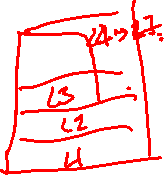 L4 => L7.
L3
L2
L1